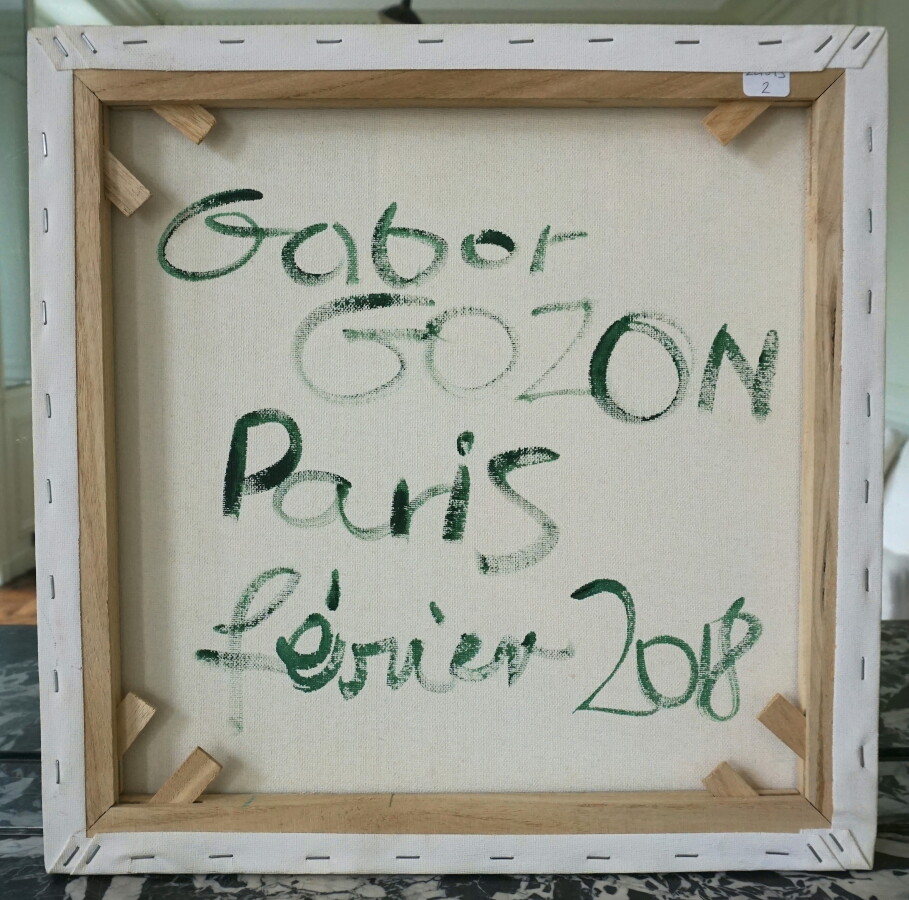 2
Gabor
GOZON
Paris
février 2018